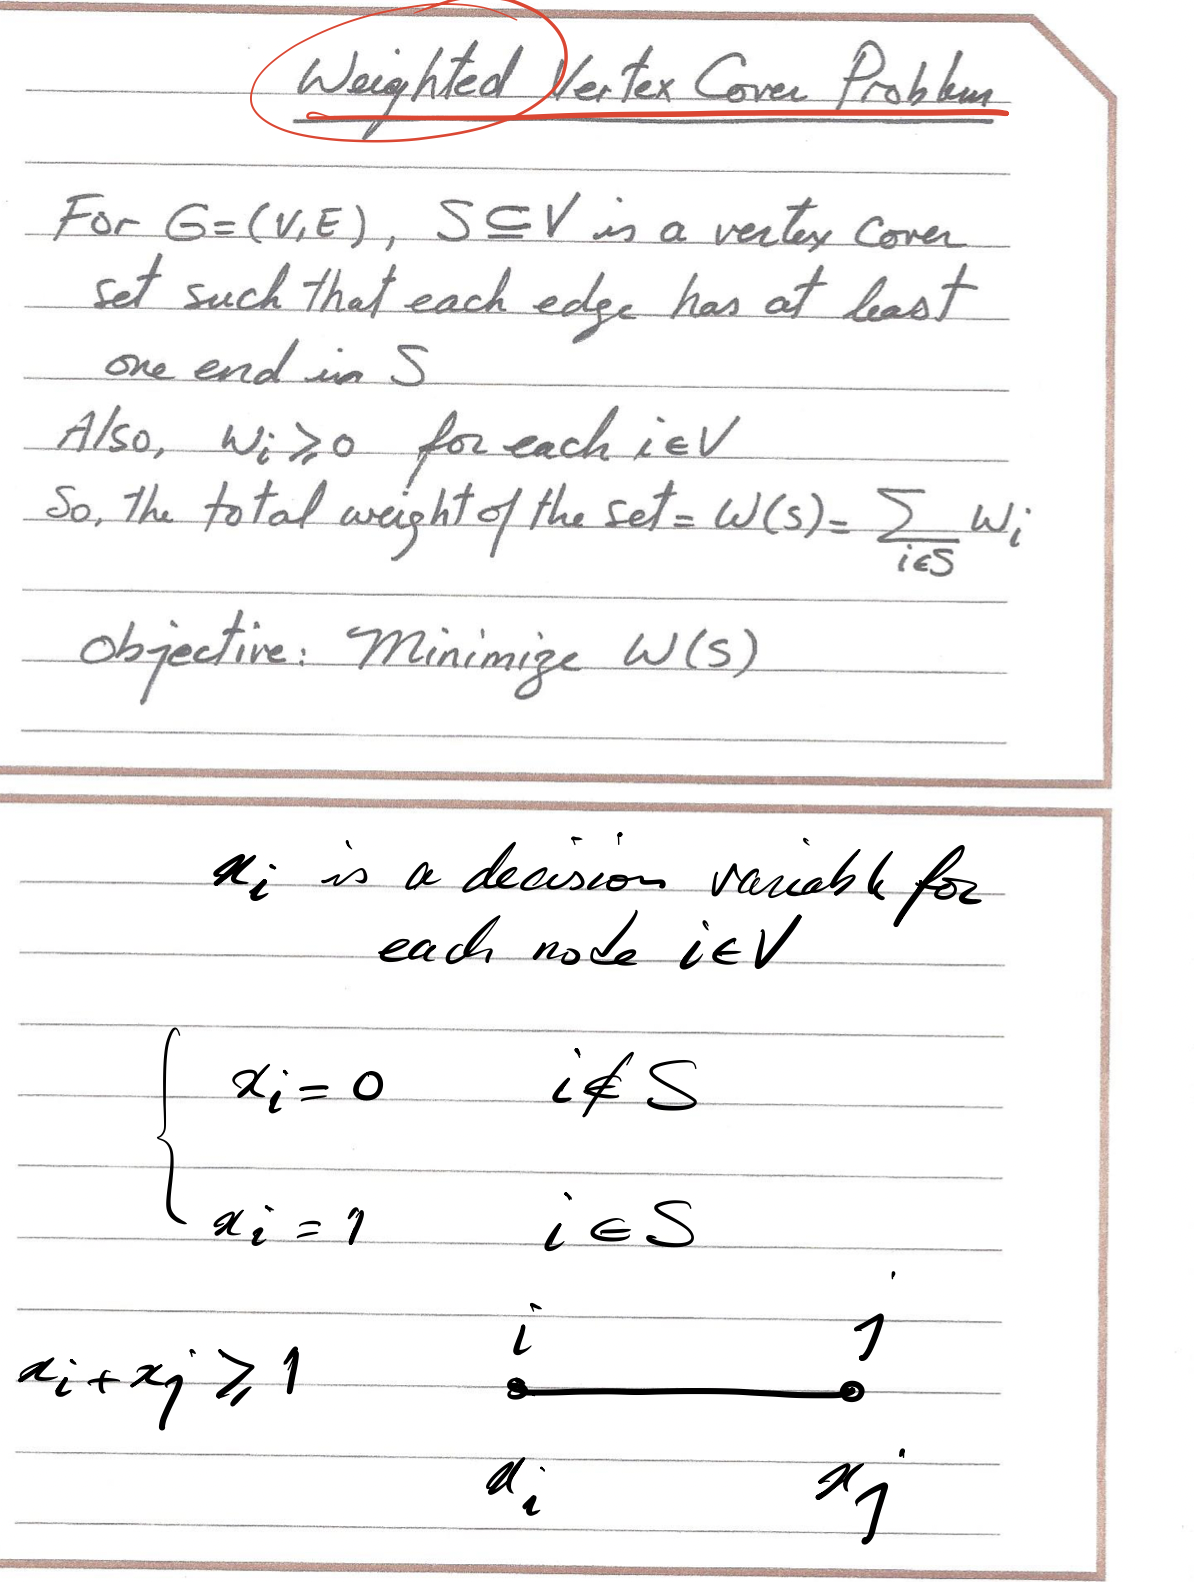 Weighted Vertex Cover Problem
For G=(V,E), S⊆V is a vertex cover
set such that each edge has at least
one end in S
Also, wᵢ ⩾ 0 for each i∈V
So, the total weight of the set = W(S) = ∑ wᵢ
i∈S
Objective: Minimize W(S)
xᵢ is a decision variable for
each node i∈V
xᵢ = 0 i∉S
xᵢ = 1 i∈S
i j
xᵢ + xⱼ ⩾ 1
xᵢ xⱼ